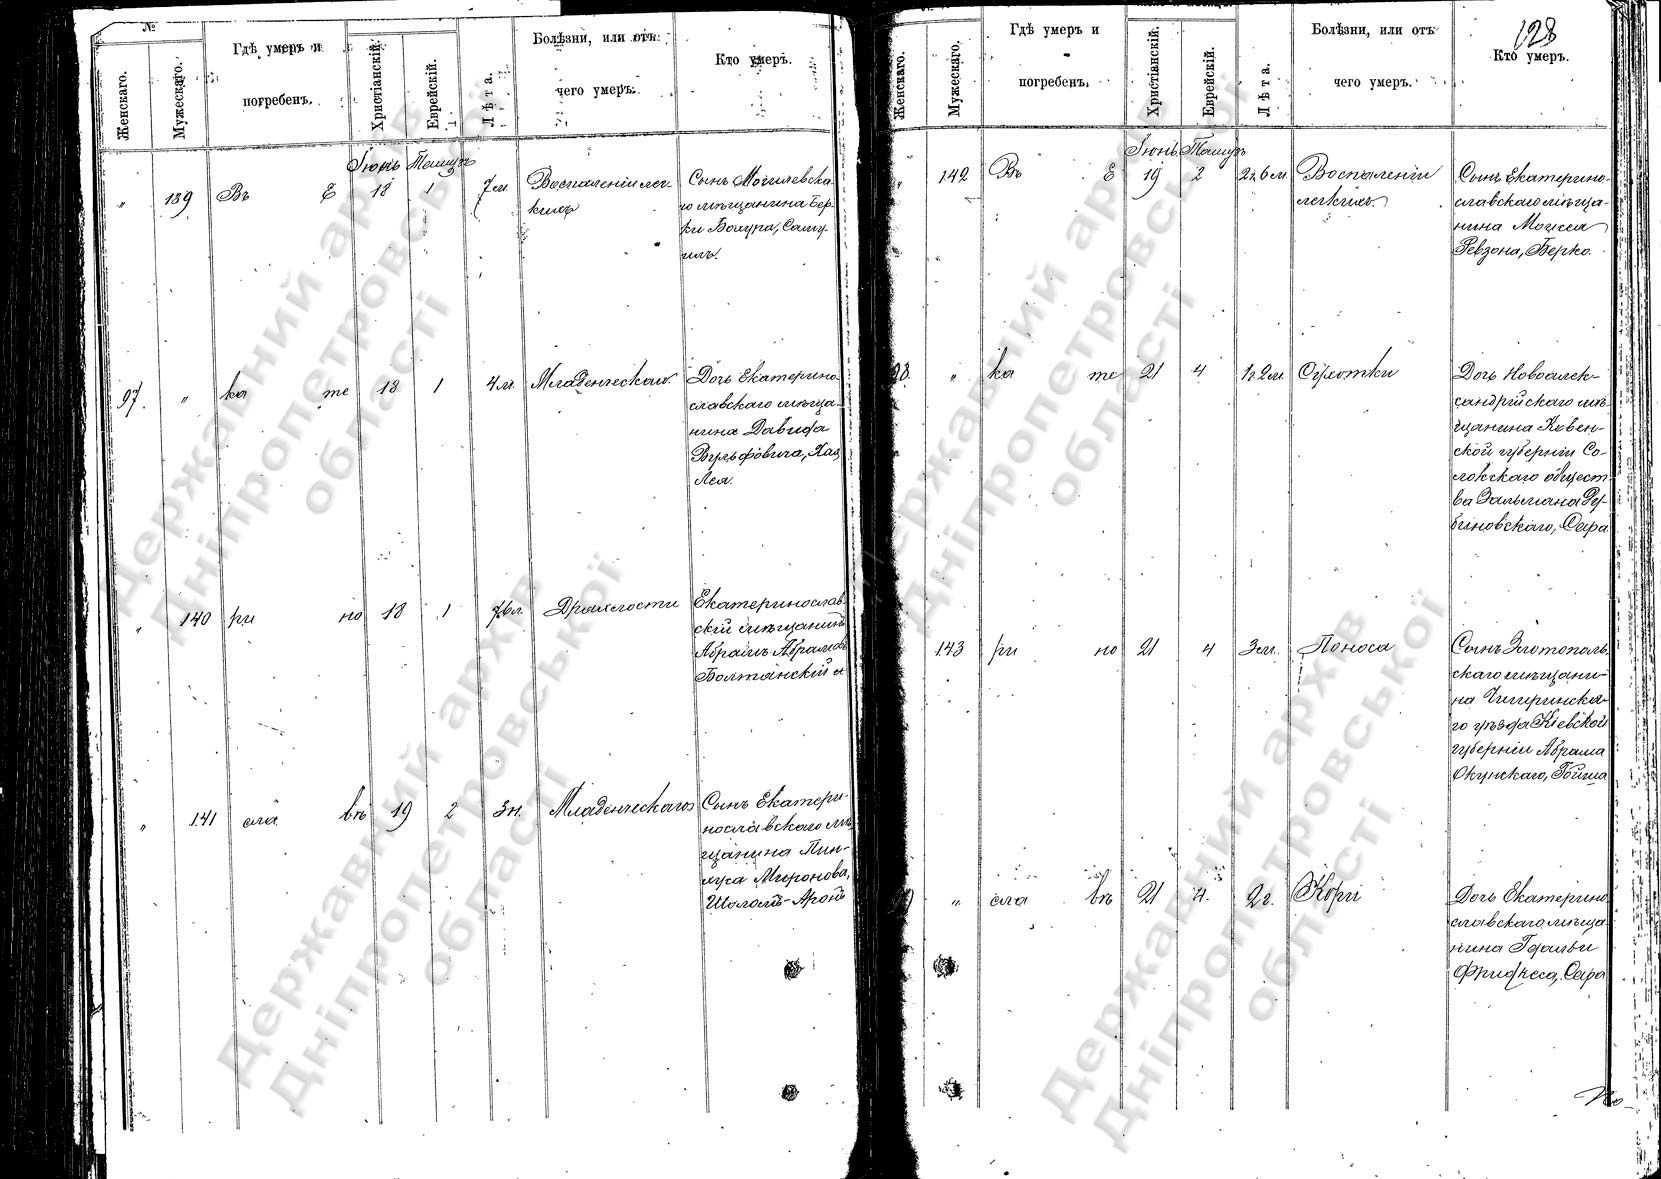 №
Женскаго.
Мужескаго.
Гдѣ умеръ и
погребенъ.
Христіанскій.
Еврейскій.
Лѣта.
Болѣзни, или отъ
чего умеръ.
Кто умеръ.
Іюнь Тамузъ
" 139 Въ Е 18 1 7 м. Воспаленія лег-
кихъ
Сынъ Могилевска-
го мѣщанина Бер-
ки Самуилъ.
97. " ка те 18 1 4 м. Младенческаго
Дочь Екатерино-
славскаго мѣща-
нина Давида
Вульфовича, Хая
Лея.
" 140 ри но 18 1 Дряхлости
Екатеринослав-
скій мѣщанинъ
Абрамъ Абрамовъ
Болтянскій
" 141 сла въ 19 2 3 н. Младенческаго
Сынъ Екатери-
нославскаго мѣ-
щанина Пин-
хуса Миронова,
Шоломъ-Аронъ
128
Женскаго.
Мужескаго.
Гдѣ умеръ и
погребенъ.
Христіанскій.
Еврейскій.
Лѣта.
Болѣзни, или отъ
чего умеръ.
Кто умеръ.
Іюнь Тамузъ
" 142 Въ Е 19 2 2 г. 6 м. Воспаленія
легкихъ.
Сынъ Екатерино-
славскаго мѣща-
нина Моисея
Ревзона, Берко.
98. " ка те 21 4 1 г. 2 м. Сухотки
Дочь Новоалек-
сандрійскаго мѣ-
щанина Ковен-
ской губерніи Со-
локскаго общест-
ва Зальмана Ру-
биновскаго, Сара
143 ри но 21 4 3 м. Поноса
Сынъ Златополь-
скаго мѣщани-
на Чигиринска-
го уѣзда Кіевской
губерніи Абрама
Окунскаго,
" сла въ 21 4. 2 г. Кори
Дочь Екатерино-
славскаго мѣща-
нина
Сара
Державний архів
Дніпропетровської
області
Державний архів
Дніпропетровської
області
Державний архів
Дніпропетровської
області
Державний архів
Дніпропетровської
області